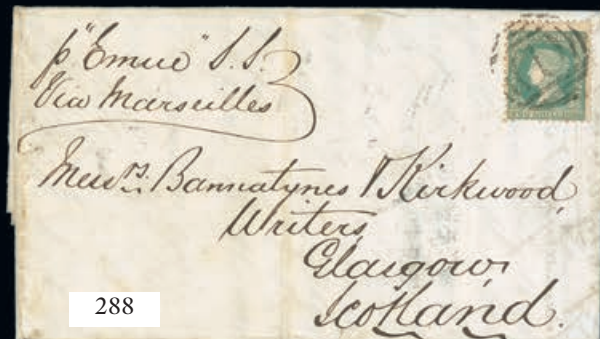 p "Emue" S.S.
Via Marseilles
Messrs. Bannatynes & Kirkwood,
Writers,
Glasgow,
Scotland.
288